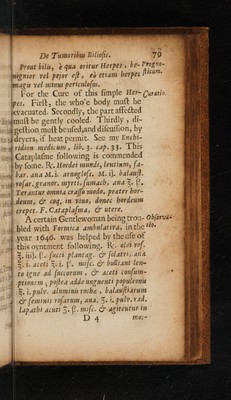 De Tumoribus Biliosis. 79
Prout bilis, è qua oritur Herpes, be-
nignior vel pejor est, eò etiam herpes
magis vel minus periculosus.
Progno-
sticum.
For the Cure of this simple Her-
pes. First, the whole body must be
Curatio.
evacuated. Secondly, the part affected
must be gently cooled. Thirdly, di-
gestion must be used, and discussion, by
dryers, if heat permit. See my Enchi-
ridion medicum, lib. 3. cap. 33. This
Cataplasme following is commended
by some. ℞. Hordei mundi, lentium, fa-
bar. ana M.i. arnogloss. M. ij. balaust.
rosar. granor. myrti. sumach. ana ʒ. ß
Terantur omnia crasso modo, præter hor-
deum, & coq. in vino, donec hordeum
crepet. F. Cataplasma, & utere.
A certain Gentlewoman being trou-
bled with Formica ambulativa, in the
Observa-
tio.
year 1646. was helped by the use of
this oyntment following. ℞. olei ros.
℥. iiij. ß. succi plantag. & solatri, ana
℥. i. aceti ℥. i. ß. misc. & bulliant len-
to igne ad succorum, & aceti consum-
ptionem; postea adde unguenti populeonis
℥. i. pulv. aluminis rochæ, balaustiarum
& seminis rosarum, ana, ʒ. i. pulv. rad.
lapathi acuti ʒ. ß. misc. & agitentur in
D 4 mor-